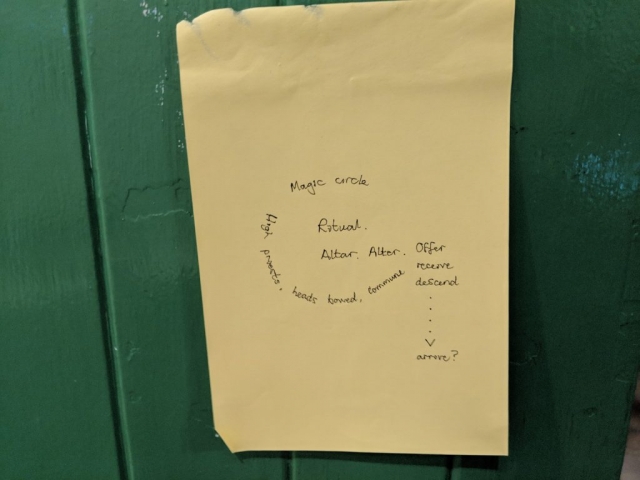 Magic circle
Ritual.
Altar. Alter. Offer
receive
descend
High priests, heads bowed, commune
arrive?